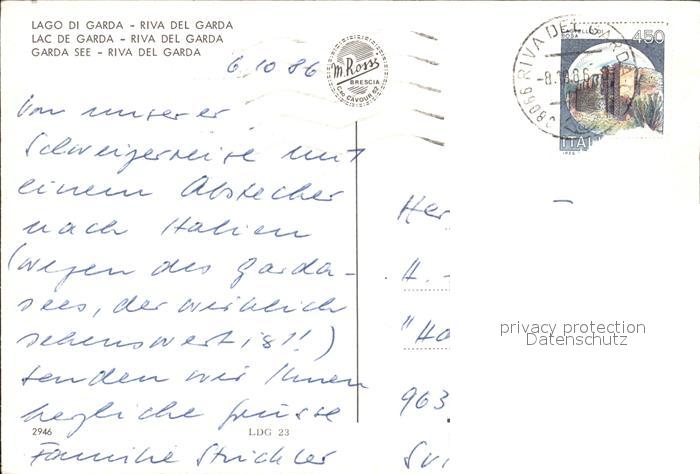 LAGO DI GARDA - RIVA DEL GARDA
LAC DE GARDA - RIVA DEL GARDA
GARDA SEE - RIVA DEL GARDA
6.10.86
m. Rossi
BRESCIA
C.so CAVOUR 52
38066 RIVA DEL GARDA
-8.10.86
CASTELLO DI
450
ITALIA
Von unserer
Schweizerreise mit
einem Abstecher
nach Italien
(wegen des Garda-
sees, der wirklich
sehenswert ist!!)
senden wir Ihnen
herzliche Grüsse
Familie Strichler
Her
H. -
"Ha
963
privacy protection
Datenschutz
2946
LDG 23